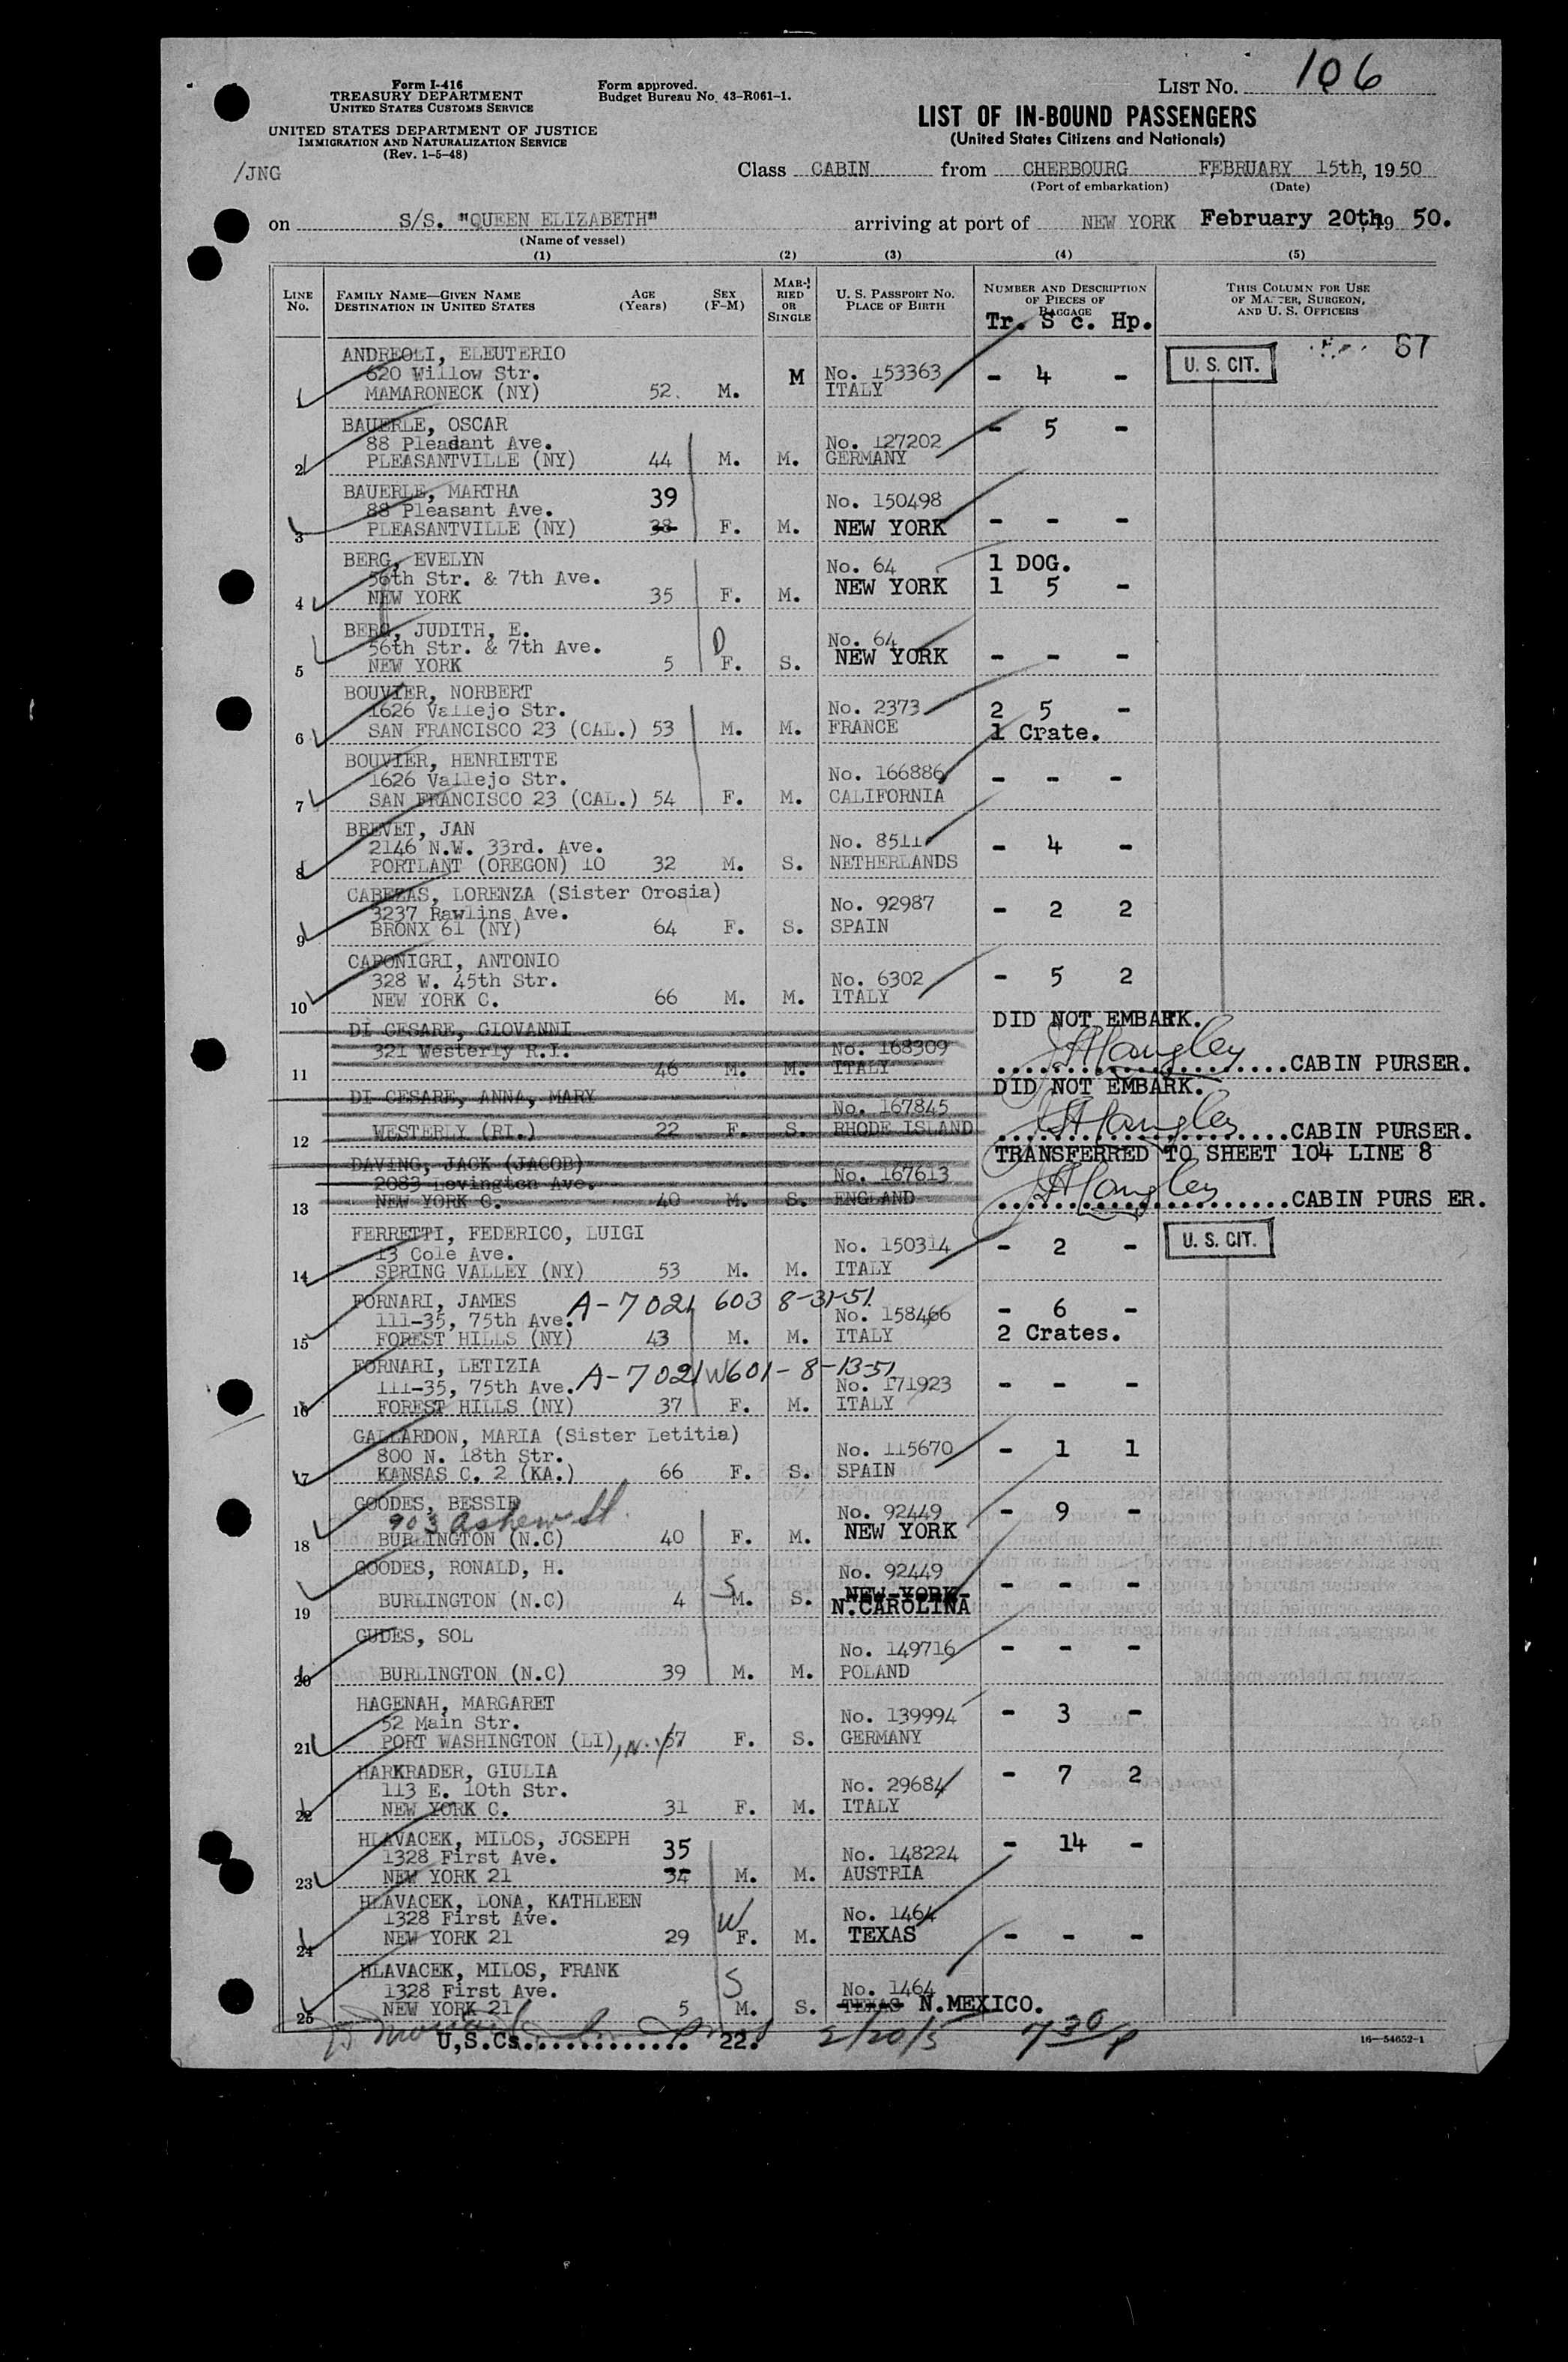 Form I-416
TREASURY DEPARTMENT
UNITED STATES CUSTOMS SERVICE
UNITED STATES DEPARTMENT OF JUSTICE
IMMIGRATION AND NATURALIZATION SERVICE
(Rev. 1-5-48)
/JNG
Form approved.
Budget Bureau No. 43-R061-1.
LIST No. 106
LIST OF IN-BOUND PASSENGERS
(United States Citizens and Nationals)
Class CABIN from CHERBOURG FEBRUARY 15th, 1950
(Port of embarkation) (Date)
on S/S. "QUEEN ELIZABETH" arriving at port of NEW YORK February 20th, 19 50.
(Name of vessel)
(1) (2) (3) (4) (5)
LINE No. FAMILY NAME—GIVEN NAME DESTINATION IN UNITED STATES AGE (Years) SEX (F-M) MARRIED OR SINGLE U. S. PASSPORT No. PLACE OF BIRTH NUMBER AND DESCRIPTION OF PIECES OF BAGGAGE THIS COLUMN FOR USE OF MASTER, SURGEON, AND U. S. OFFICERS
Tr. S c. Hp.
ANDREOLI, ELEUTERIO 67
620 Willow Str. M No. 153363 - 4 - U. S. CIT.
1 MAMARONECK (NY) 52. M. ITALY
BAUERLE, OSCAR - 5 -
88 Pleadant Ave. No. 127202
2 PLEASANTVILLE (NY) 44 M. M. GERMANY
BAUERLE, MARTHA 39 No. 150498
88 Pleasant Ave.
3 PLEASANTVILLE (NY) 38 F. M. NEW YORK - - -
BERG, EVELYN No. 64 1 DOG.
56th Str. & 7th Ave. NEW YORK 1 5 -
4 NEW YORK 35 F. M.
BERG, JUDITH, E. D No. 64
56th Str. & 7th Ave. NEW YORK - - -
5 NEW YORK 5 F. S.
BOUVIER, NORBERT
1626 Vallejo Str. No. 2373 2 5 -
6 SAN FRANCISCO 23 (CAL.) 53 M. M. FRANCE 1 Crate.
BOUVIER, HENRIETTE
1626 Vallejo Str. No. 166886 - - -
7 SAN FRANCISCO 23 (CAL.) 54 F. M. CALIFORNIA
BREVET, JAN
2146 N.W. 33rd. Ave. No. 8511 - 4 -
8 PORTLANT (OREGON) 10 32 M. S. NETHERLANDS
CABEZAS, LORENZA (Sister Orosia)
3237 Rawlins Ave. No. 92987 - 2 2
9 BRONX 61 (NY) 64 F. S. SPAIN
CAPONIGRI, ANTONIO
328 W. 45th Str. No. 6302 - 5 2
10 NEW YORK C. 66 M. M. ITALY
DI CESARE, GIOVANNI DID NOT EMBARK.
321 Westerly R.I. No. 168309
11 46 M. M. ITALY CABIN PURSER.
DI CESARE, ANNA, MARY DID NOT EMBARK.
No. 167845
12 WESTERLY (RI.) 22 F. S. RHODE ISLAND CABIN PURSER.
DAVING, JACK (JACOB) TRANSFERRED TO SHEET 104 LINE 8
2083 Levington Ave. No. 167613
13 NEW YORK C. 40 M. S. ENGLAND CABIN PURS ER.
FERRETTI, FEDERICO, LUIGI
13 Cole Ave. No. 150314 - 2 - U. S. CIT.
14 SPRING VALLEY (NY) 53 M. M. ITALY
FORNARI, JAMES A-7021 603 8-31-51
111-35, 75th Ave. No. 158466 - 6 -
15 FOREST HILLS (NY) 43 M. M. ITALY 2 Crates.
FORNARI, LETIZIA A-7021 W601-8-13-51
111-35, 75th Ave. No. 171923 - - -
16 FOREST HILLS (NY) 37 F. M. ITALY
GALLARDON, MARIA (Sister Letitia)
800 N. 18th Str. No. 115670 - 1 1
17 KANSAS C. 2 (KA.) 66 F. S. SPAIN
GOODES, BESSIE No. 92449 - 9 -
903 Askew St.
18 BURLINGTON (N.C) 40 F. M. NEW YORK
GOODES, RONALD, H. S No. 92449 - - -
NEW YORK
19 BURLINGTON (N.C) 4 M. S. N.CAROLINA
GUDES, SOL No. 149716 - - -
20 BURLINGTON (N.C) 39 M. M. POLAND
HAGENAH, MARGARET
52 Main Str. No. 139994 - 3 -
21 PORT WASHINGTON (LI), N.Y 67 F. S. GERMANY
HARKRADER, GIULIA - 7 2
113 E. 10th Str. No. 29684
22 NEW YORK C. 31 F. M. ITALY
HLAVACEK, MILOS, JOSEPH 35 - 14 -
1328 First Ave. No. 148224
23 NEW YORK 21 34 M. M. AUSTRIA
HLAVACEK, LONA, KATHLEEN W
1328 First Ave. No. 1464
24 NEW YORK 21 29 F. M. TEXAS - - -
HLAVACEK, MILOS, FRANK S
1328 First Ave. No. 1464
25 NEW YORK 21 5 M. S. TEXAS N.MEXICO.
U,S.Cs............ 22. 2/20/5 7 30 P
16—54652-1